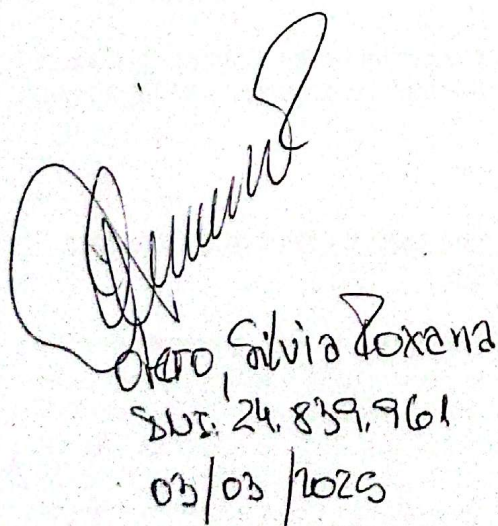 Otero, Silvia Roxana
DNI: 24.839.961
03/03/2025